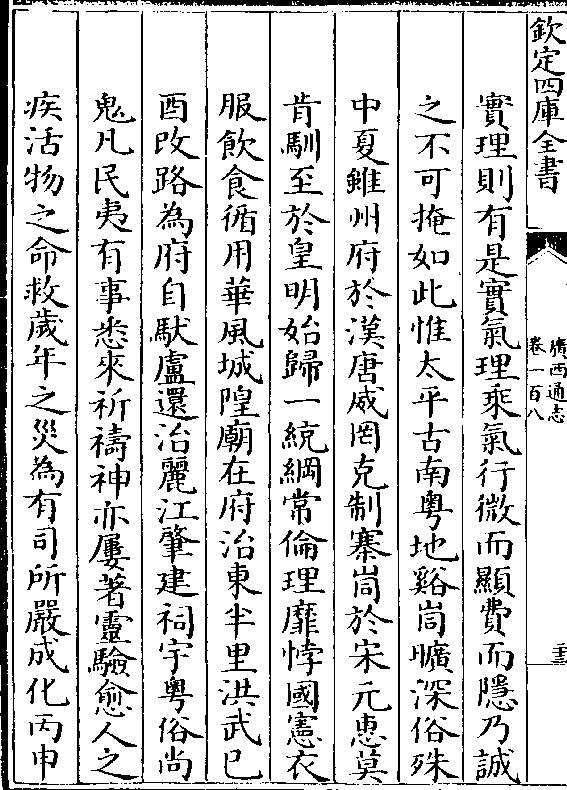 欽定四庫全書
廣西通志
卷一百八
實理則有是實氣理乘氣行微而顯費而隱乃誠
之不可掩如此惟太平古南粤地谿峝曠深俗殊
中夏雖州府於漢唐威罔克制寨峝於宋元恵莫
肯馴至於皇明始歸一統綱常倫理靡悖國憲衣
服飲食循用華風城隍廟在府治東半里洪武已
酉改路為府自馱盧還治麗江肇建祠宇粤俗尚
鬼凡民夷有事悉來祈禱神亦屢著靈驗愈人之
疾活物之命救歲年之災為有司所嚴成化丙申